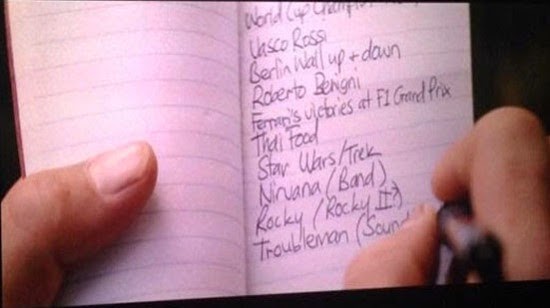 World Cup
Vasco Rossi
Berlin Wall up + down
Roberto Benigni
Ferrari's victories at F1 Grand Prix
Thai Food
Star Wars/Trek
Nirvana (Band)
Rocky (Rocky II?)
Troubleman (Sound